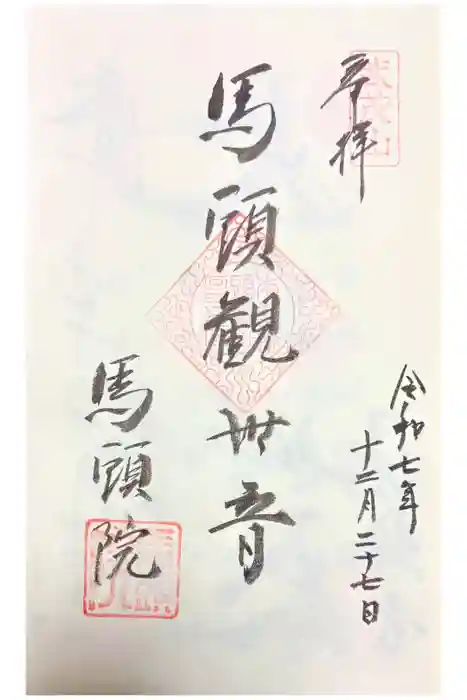 奉拝
令和七年
十二月二十七日
馬頭観世音
馬頭院